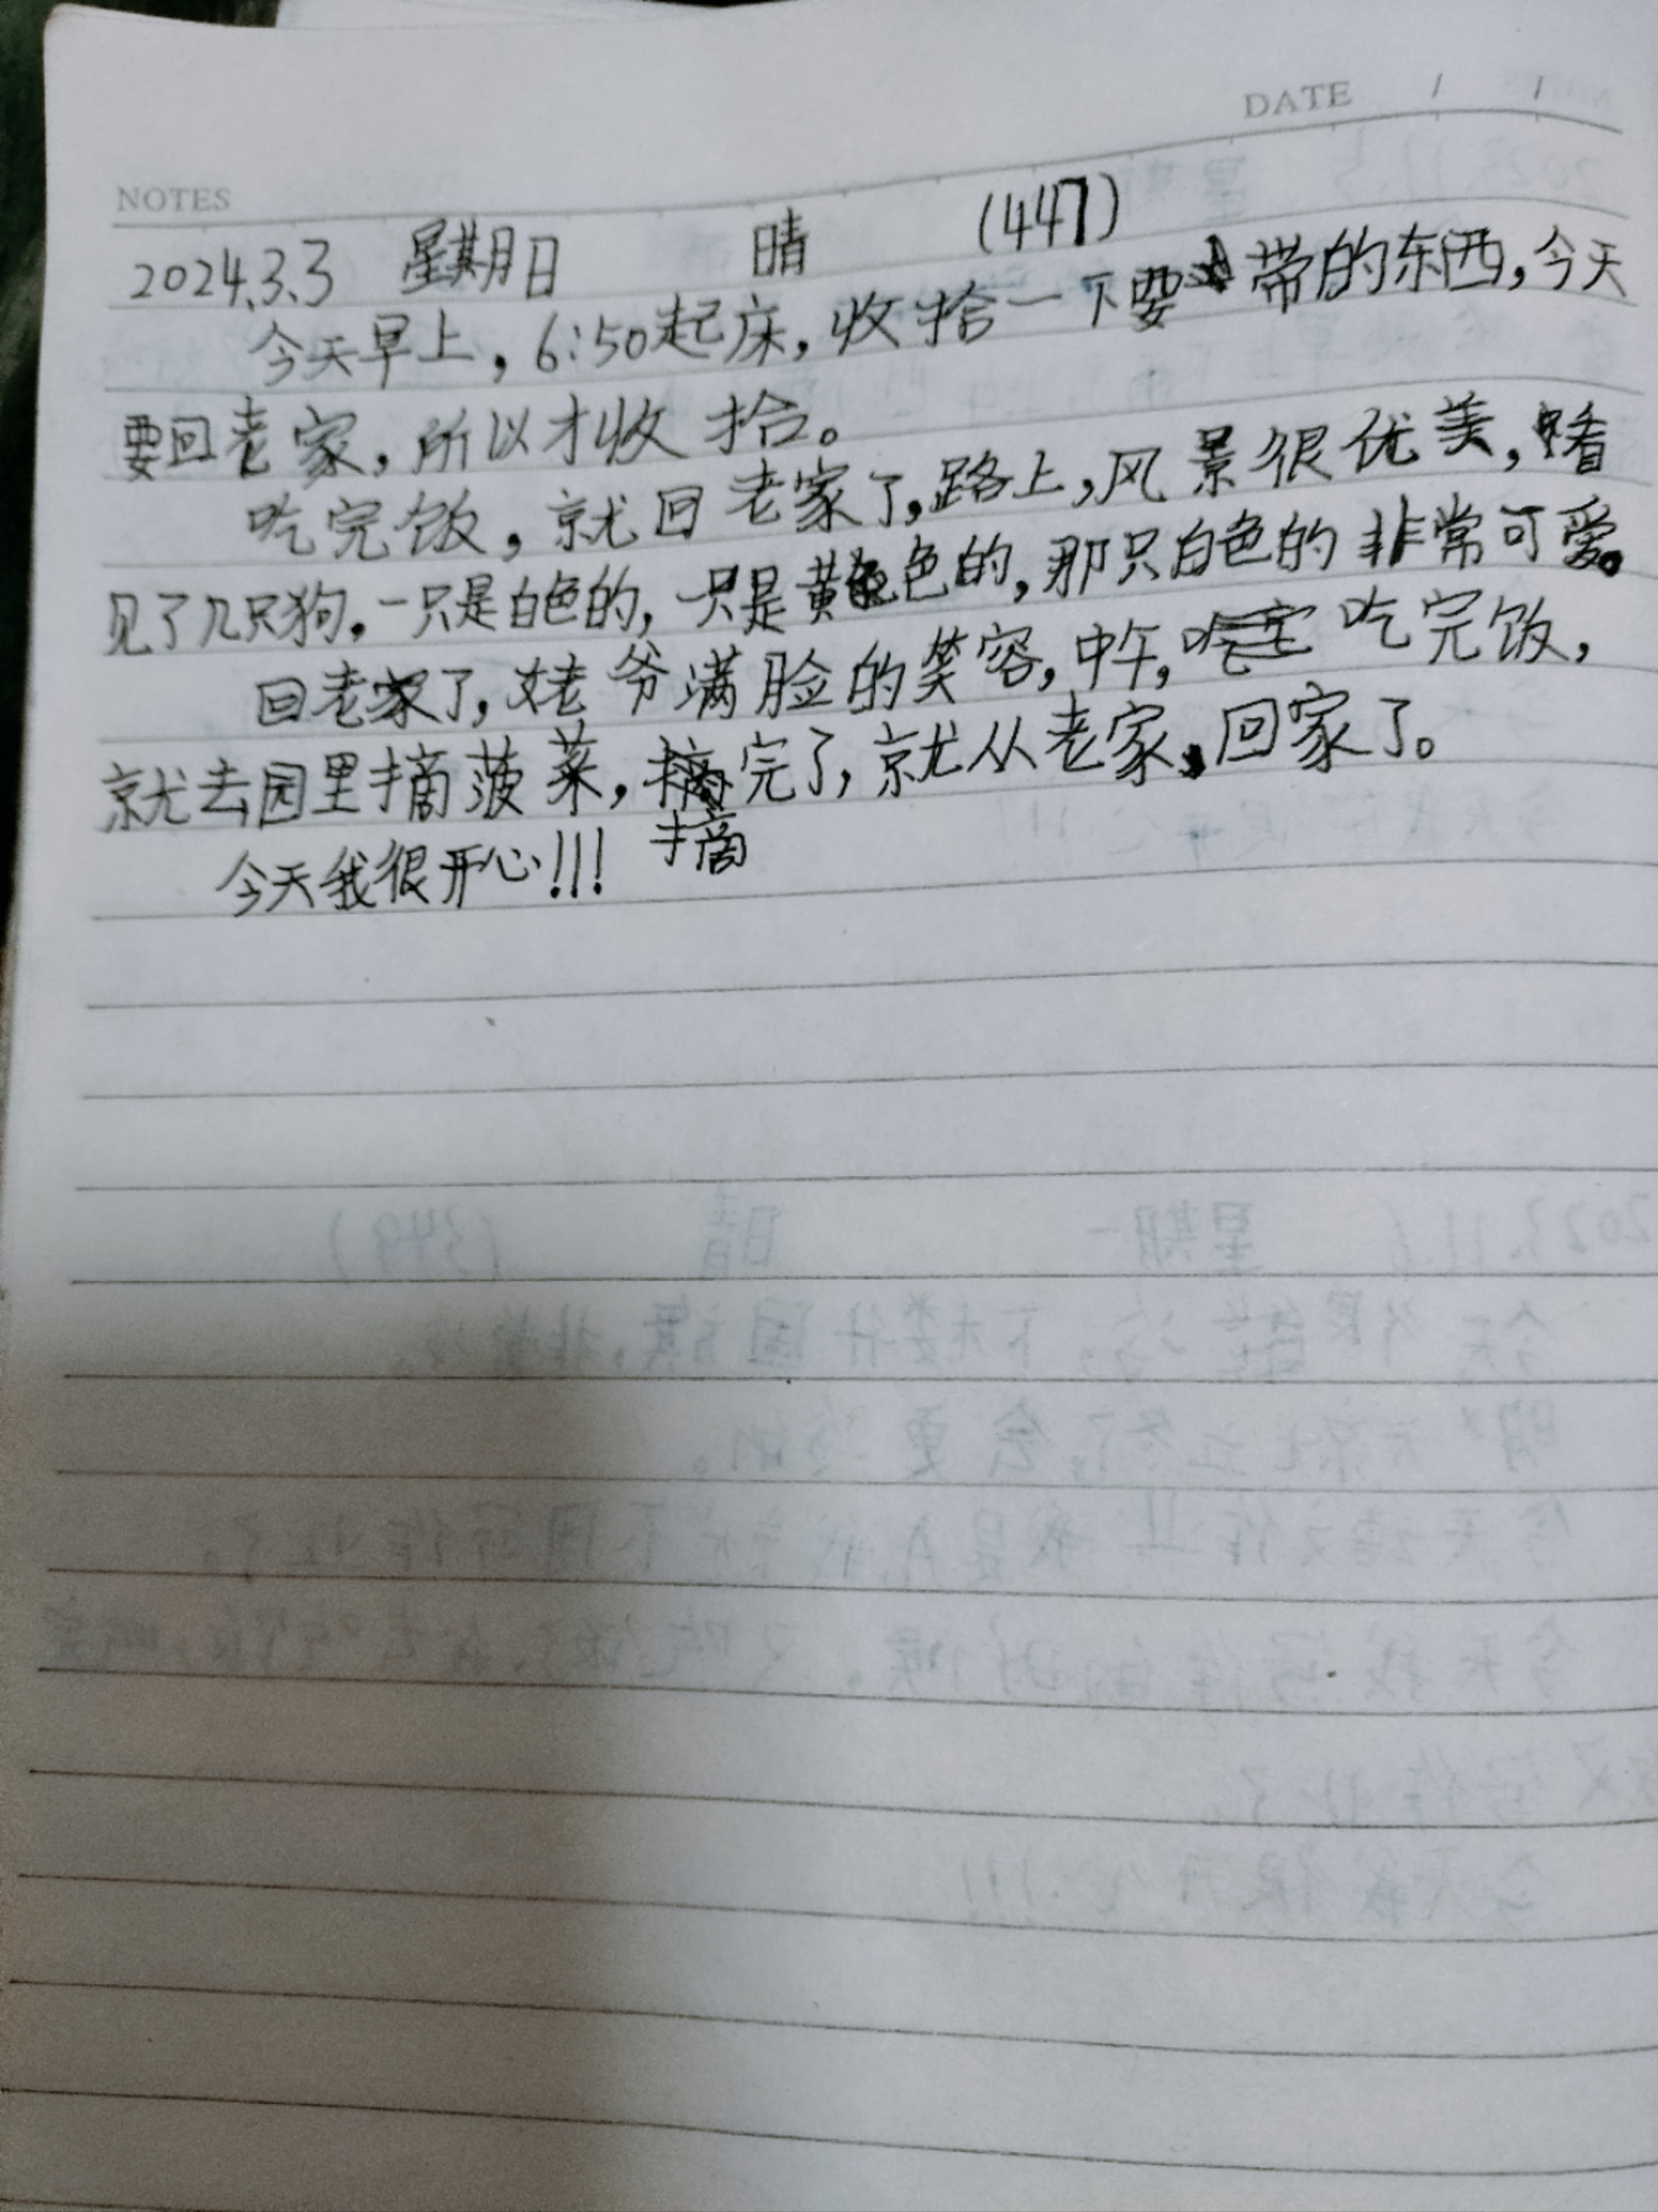 DATE / /
NOTES
2024.3.3 星期日 晴 (447)
今天早上，6:50起床，收拾一下要带的东西，今天
要回老家，所以才收拾。
吃完饭，就回老家了，路上，风景很优美，看
见了几只狗。一只是白色的，一只是黄色的，那只白色的非常可爱。
回老家了，姥爷满脸的笑容，中午，吃完饭，
就去园里摘菠菜，摘完了，就从老家，回家了。
今天我很开心!!!